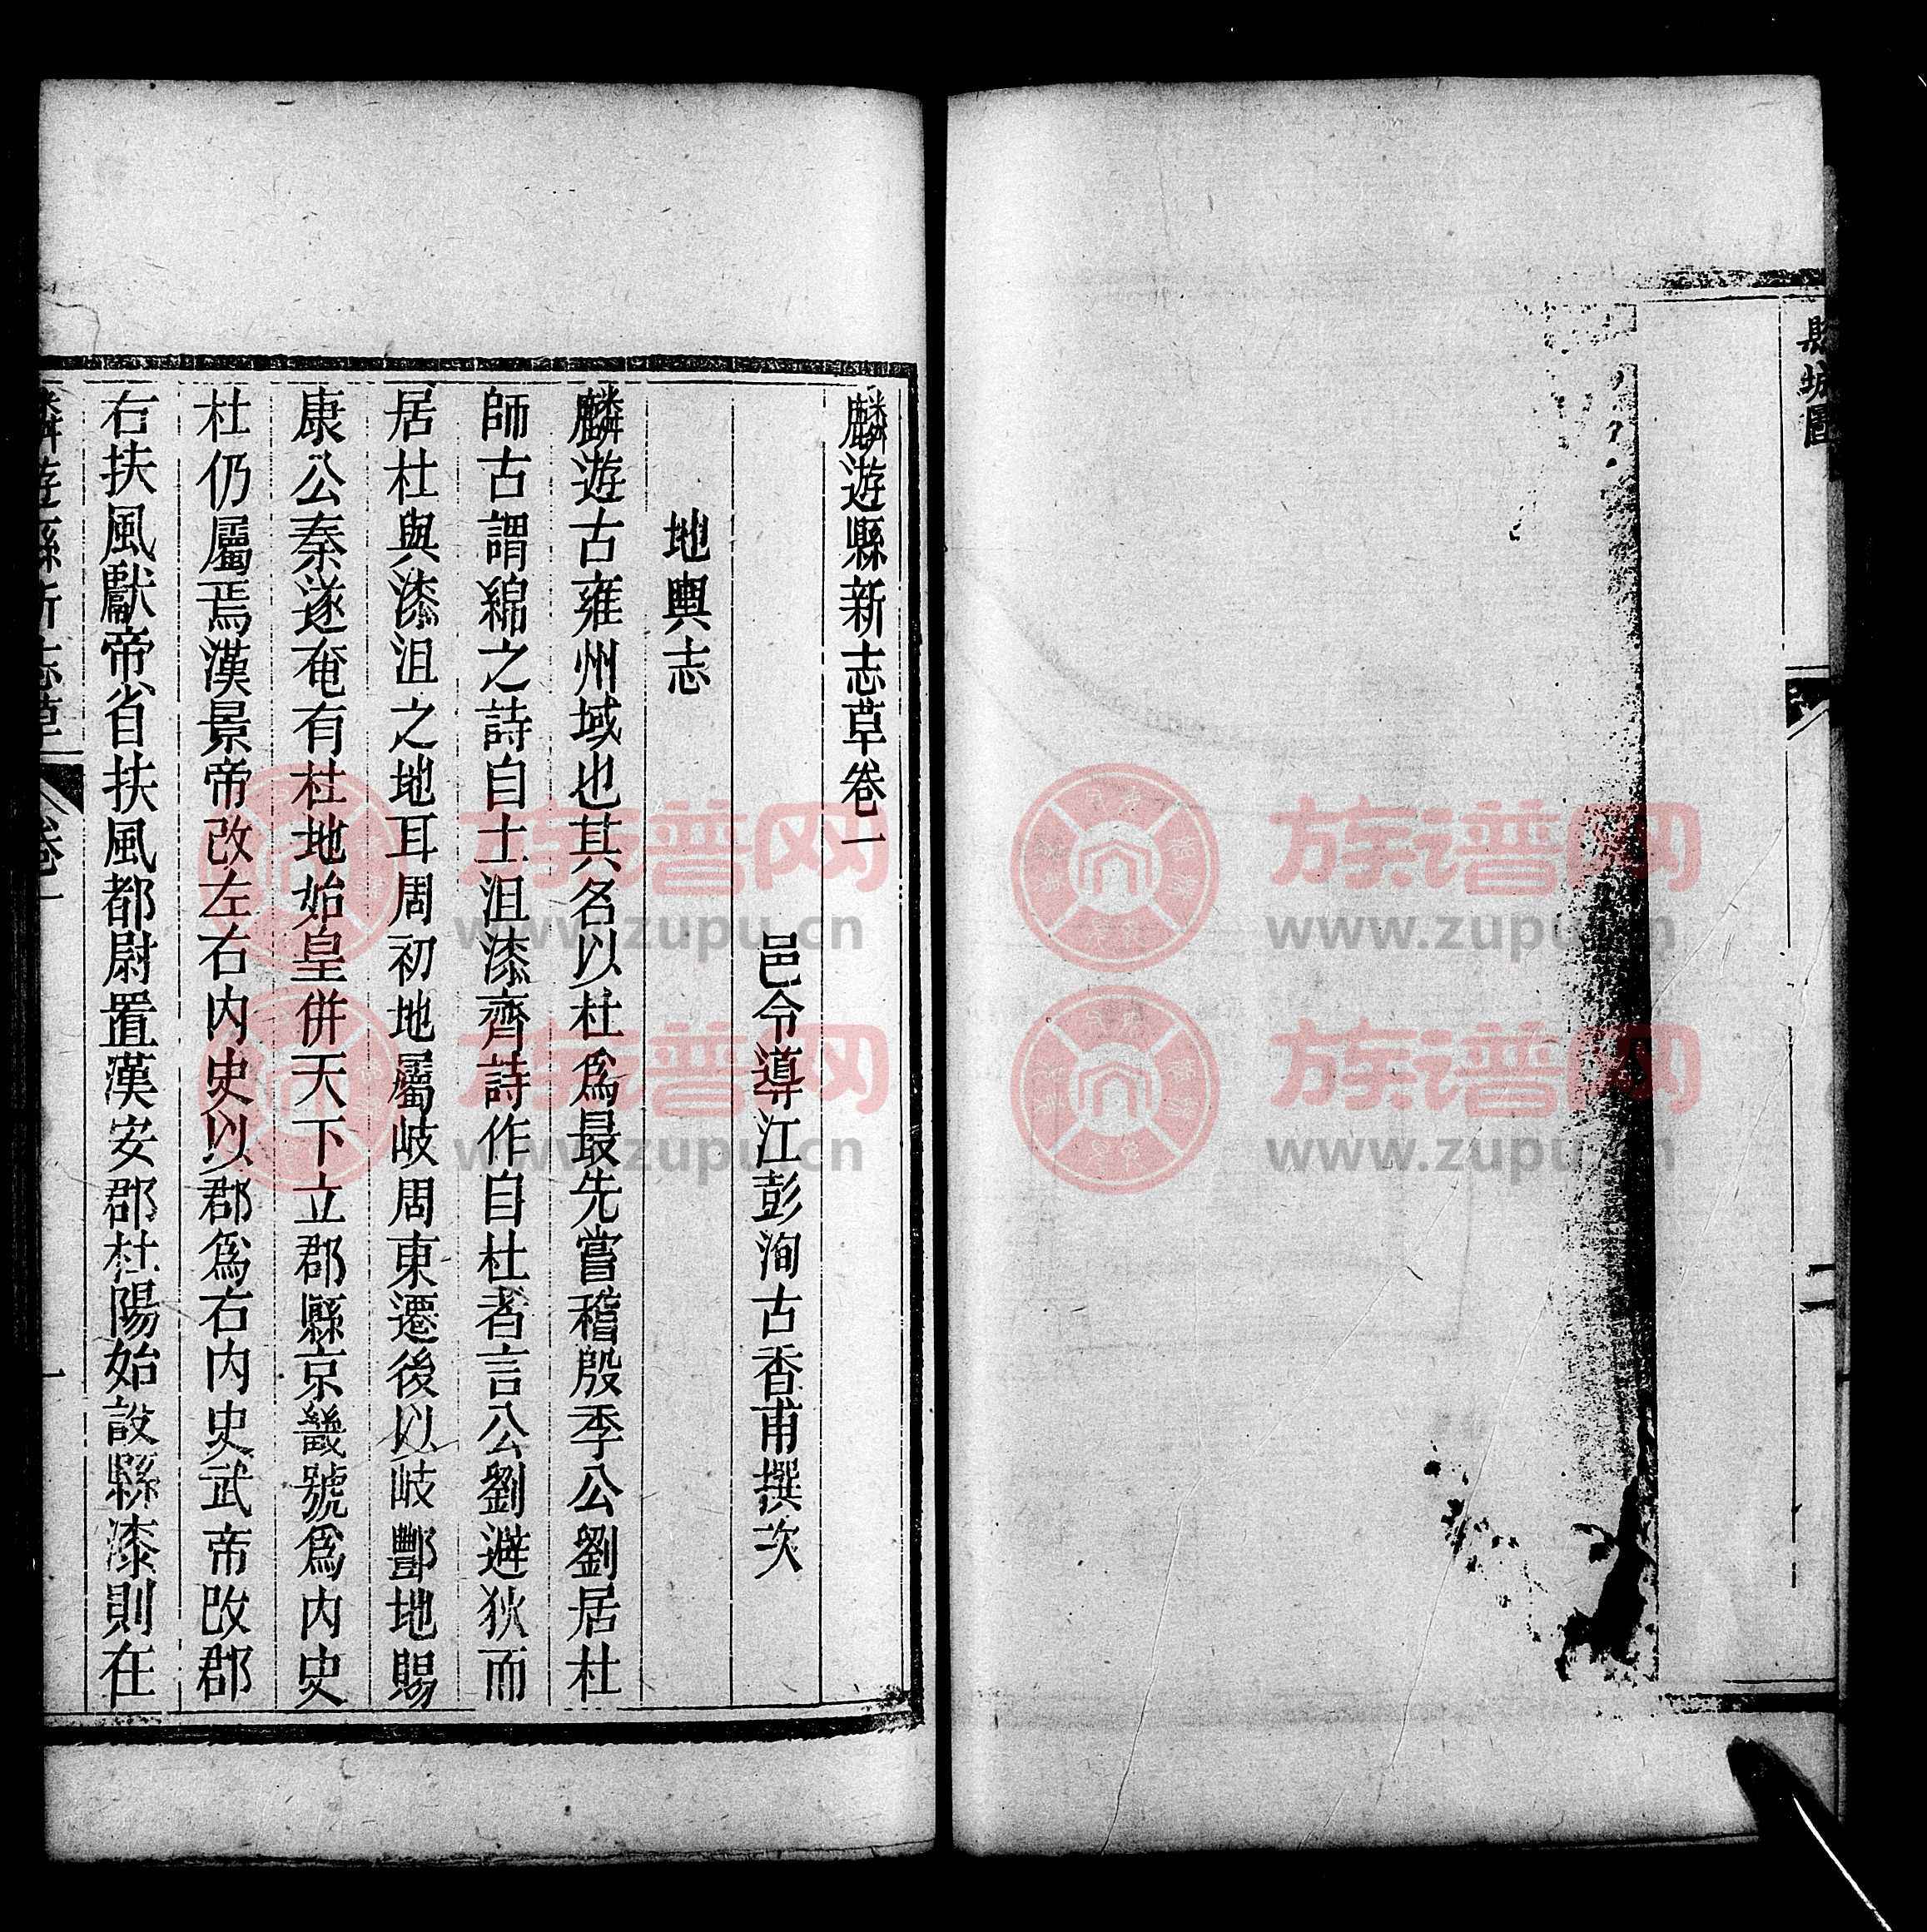 縣城圖
二
麟遊縣新志草卷一
邑令導江彭洵古香甫撰次
地輿志
麟遊古雍州域也其名以杜爲最先嘗稽殷季公劉居杜
師古謂緜之詩自土沮漆齊詩作自杜者言公劉避狄而
居杜與漆沮之地耳周初地屬岐周東遷後以岐酆地賜
康公秦遂奄有杜地始皇併天下立郡縣京畿號爲内史
杜仍屬焉漢景帝改左右内史以郡爲右内史武帝改郡
右扶風獻帝省扶風都尉置漢安郡杜陽始設縣漆則在
麟遊縣新志草
卷一
一
族谱网
www.zupu.cn
族谱网
www.zupu.cn
族谱网
www.zupu.cn
族谱网
www.zupu.cn